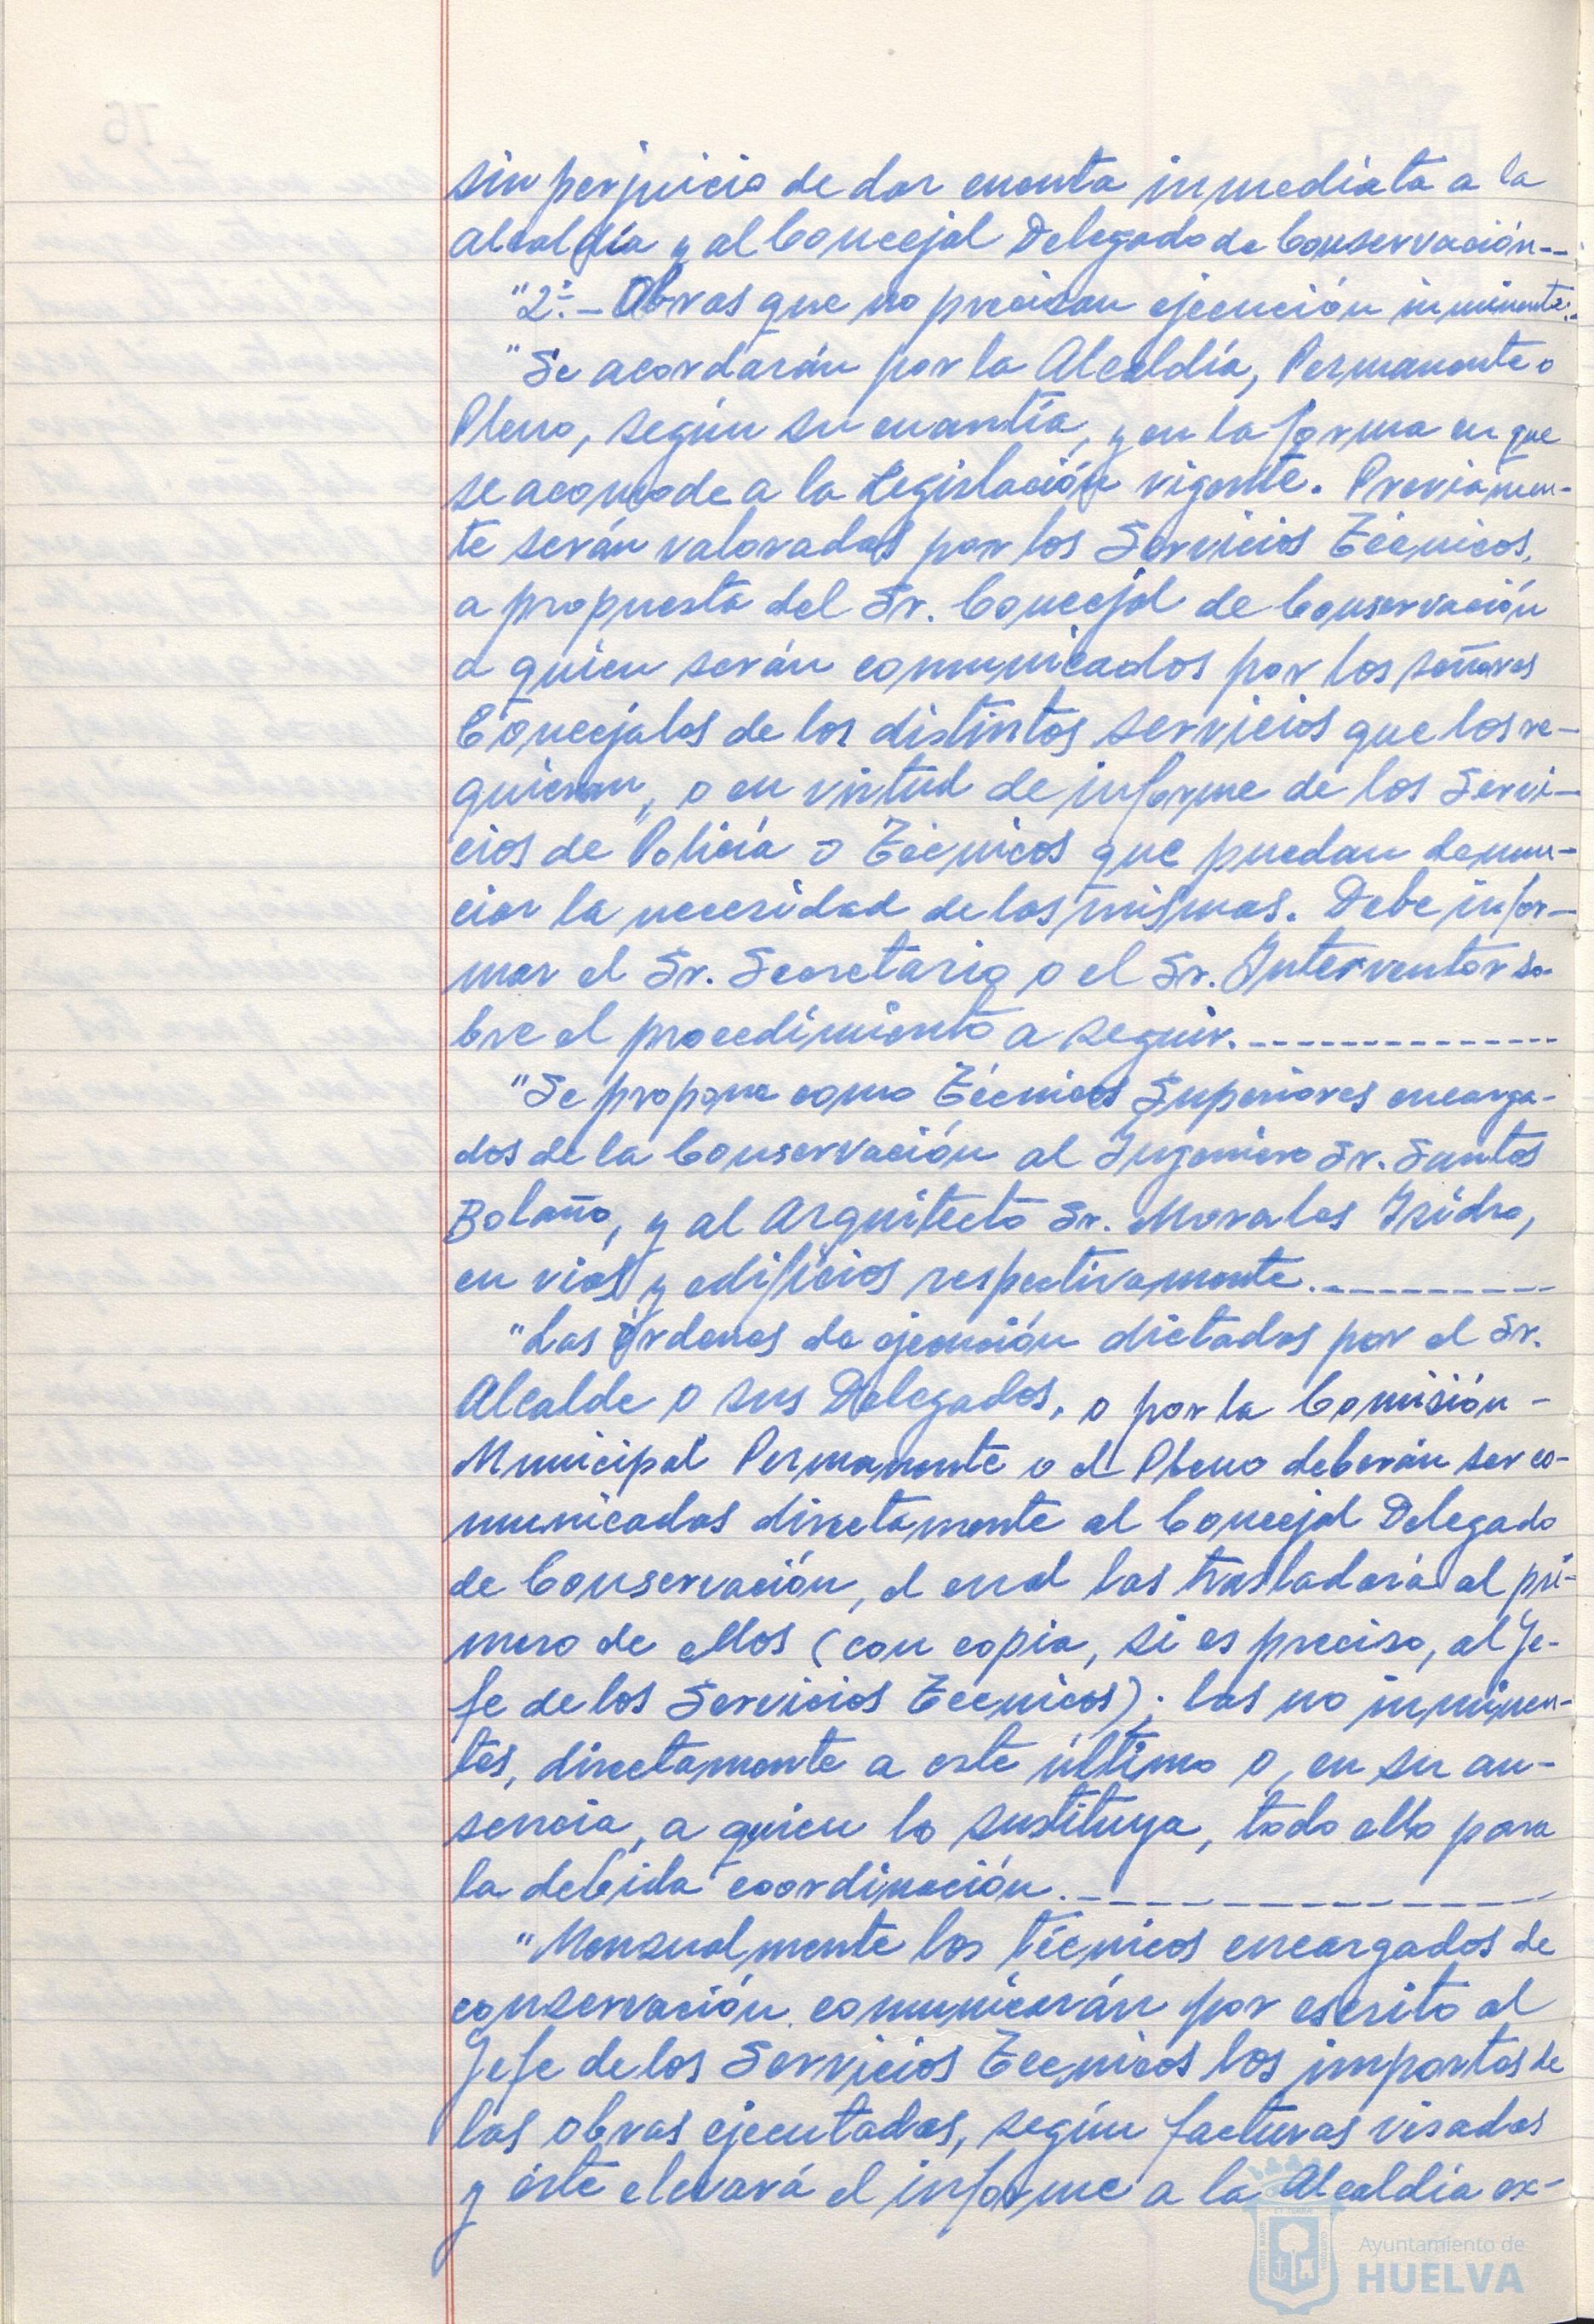 sin perjuicio de dar cuenta inmediata a la
Alcaldía y al Concejal Delegado de Conservación.--
"2º.- Obras que no precisan ejecución inminente:.
"Se acordarán por la Alcaldía, Permanente o
Pleno, según su cuantía, y en la forma en que
se acomode a la Legislación vigente. Previamen-
te serán valoradas por los Servicios Técnicos,
a propuesta del Sr. Concejal de Conservación
a quien serán comunicados por los señores
Concejales de los distintos servicios que los re-
quieran, o en virtud de informe de los Servi-
cios de Policía o Técnicos que puedan denun-
ciar la necesidad de las mismas. Debe infor-
mar el Sr. Secretario o el Sr. Interventor so-
bre el procedimiento a seguir.--------------
"Se propone como Técnicos Superiores encarga-
dos de la Conservación al Ingeniero Sr. Santos
Bolaño, y al Arquitecto Sr. Morales Isidro,
en vías y edificios respectivamente.---------
"Las órdenes de ejecución dictadas por el Sr.
Alcalde o sus Delegados, o por la Comisión -
Municipal Permanente o el Pleno deberán ser co-
municadas directamente al Concejal Delegado
de Conservación, el cual las trasladará al pri-
mero de ellos (con copia, si es preciso, al Je-
fe de los Servicios Técnicos); las no inminen-
tes, directamente a este último o, en su au-
sencia, a quien lo sustituya, todo ello para
la debida coordinación.---------
"Mensualmente los técnicos encargados de
conservación comunicarán por escrito al
Jefe de los Servicios Técnicos los importes de
las obras ejecutadas, según facturas visadas
y éste elevará el informe a la Alcaldía ex-
Ayuntamiento de
HUELVA